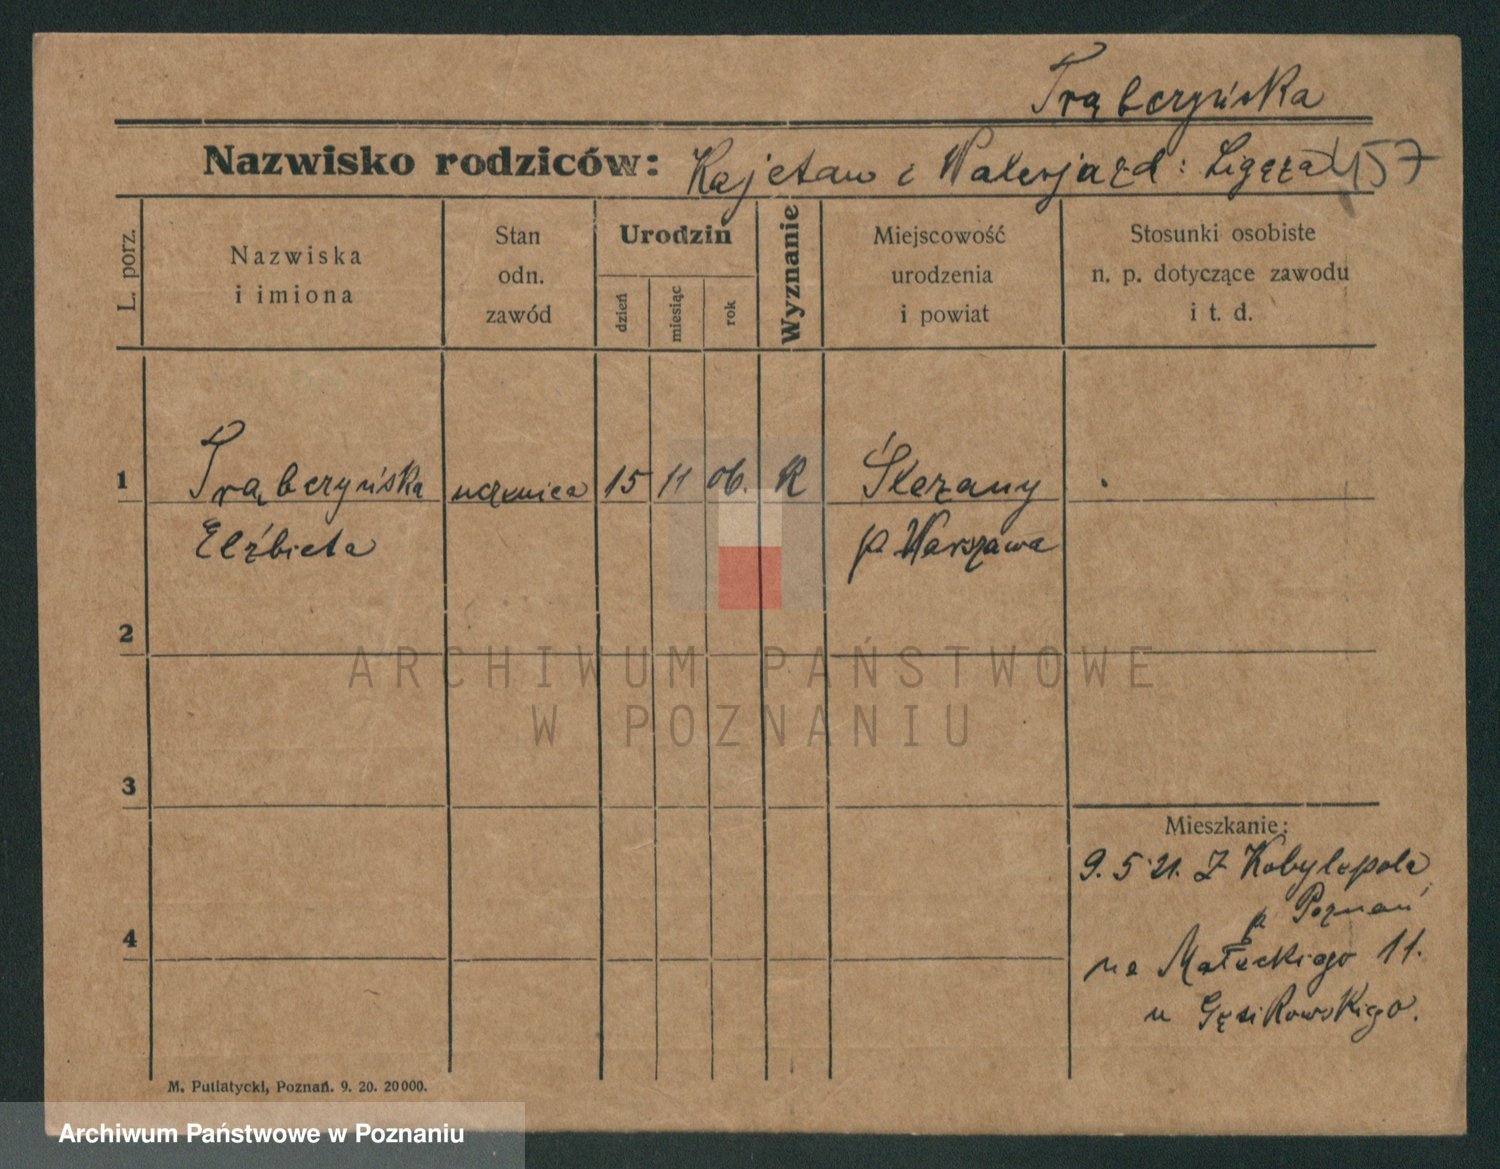 Trąbczyńska
Nazwisko rodziców: Kajetan i Walerja zd: Ligęza 157
L. porz.
Nazwiska
i imiona
Stan
odn.
zawód
Urodzin
dzień
miesiąc
rok
Wyznanie
Miejscowość
urodzenia
i powiat
Stosunki osobiste
n. p. dotyczące zawodu
i t. d.
1 Trąbczyńska uczenica 15 11 06. K Ślezany
Elżbieta p Warszawa
2
3
4
Mieszkanie:
9. 5 21. Z Kobylepola
p Poznań
na Małeckiego 11.
u Gęsikowskiego.
M. Putiatycki, Poznań. 9. 20. 20000.
ARCHIWUM PAŃSTWOWE
W POZNANIU
Archiwum Państwowe w Poznaniu